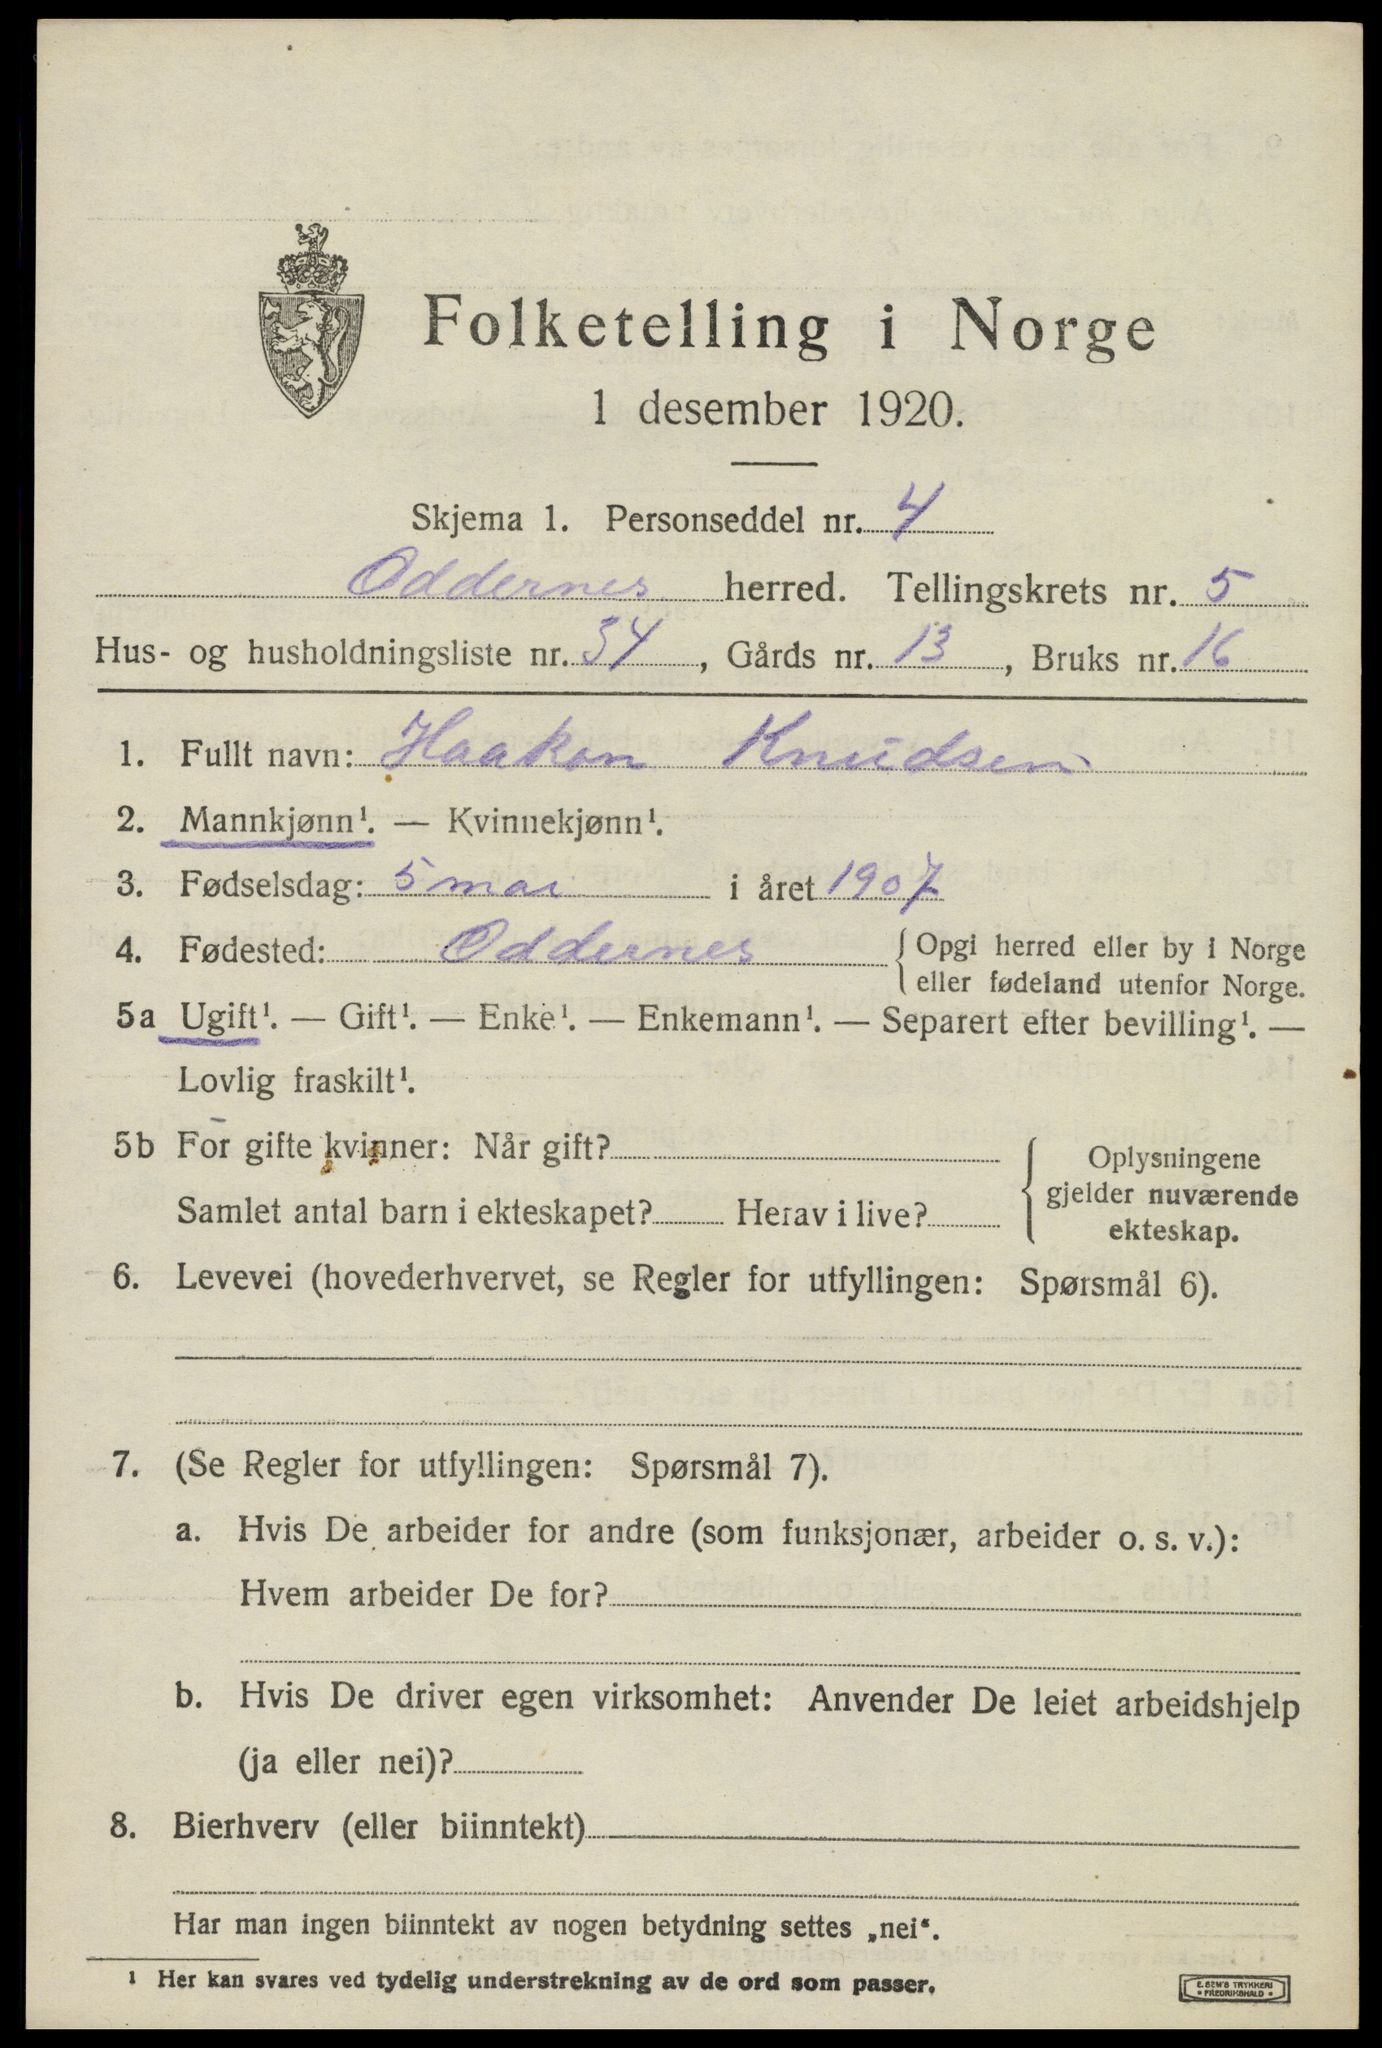 Folketelling i Norge
1 desember 1920.
Skjema 1. Personseddel nr. 4
Oddernes herred. Tellingskrets nr. 5
Hus- og husholdningsliste nr. 34, Gårds nr. 13, Bruks nr. 16
1. Fullt navn: Haakon Knudsen
2. Mannkjønn¹. — Kvinnekjønn¹.
3. Fødselsdag: 5 mai i året 1907
4. Fødested: Oddernes { Opgi herred eller by i Norge
eller fødeland utenfor Norge.
5a Ugift¹. — Gift¹. — Enke¹. — Enkemann¹. — Separert efter bevilling¹. —
Lovlig fraskilt¹.
5b For gifte kvinner: Når gift?
Samlet antal barn i ekteskapet? Herav i live?
{ Oplysningene
gjelder nuværende
ekteskap.
6. Levevei (hovederhvervet, se Regler for utfyllingen: Spørsmål 6).
7. (Se Regler for utfyllingen: Spørsmål 7).
a. Hvis De arbeider for andre (som funksjonær, arbeider o. s. v.):
Hvem arbeider De for?
b. Hvis De driver egen virksomhet: Anvender De leiet arbeidshjelp
(ja eller nei)?
8. Bierhverv (eller biinntekt)
Har man ingen biinntekt av nogen betydning settes „nei“.
¹ Her kan svares ved tydelig understrekning av de ord som passer.
E. SEM'S TRYKKERI
• FREDRIKSHALD •